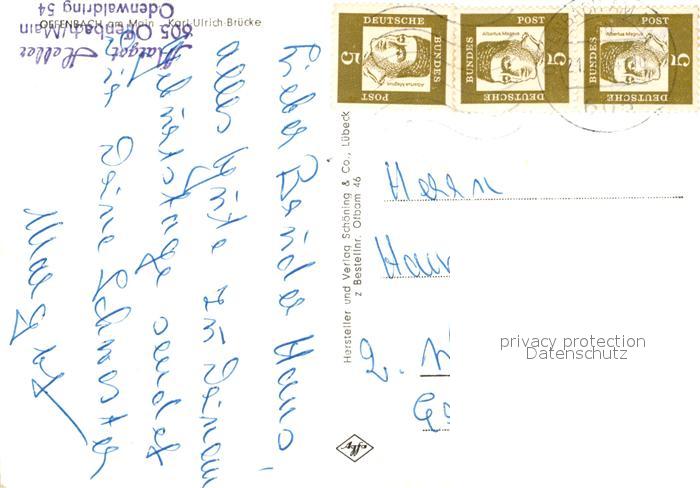 OFFENBACH am Main  Karl-Ulrich-Brücke
Margot Heller
605 Offenbach/Main
Odenwaldring 54
Lieber Bruder Hans!
alles Gute zu Deinem
Geburtstage sendet
Dir Deine Schwester
Margot
Hersteller und Verlag Schöning & Co., Lübeck
z Bestellnr. Ofbam 46
Agfa
DEUTSCHE
BUNDES
POST
5
Albertus Magnus
DEUTSCHE
BUNDES
POST
5
Albertus Magnus
DEUTSCHE
BUNDES
POST
5
Albertus Magnus
Herrn
privacy protection
Datenschutz